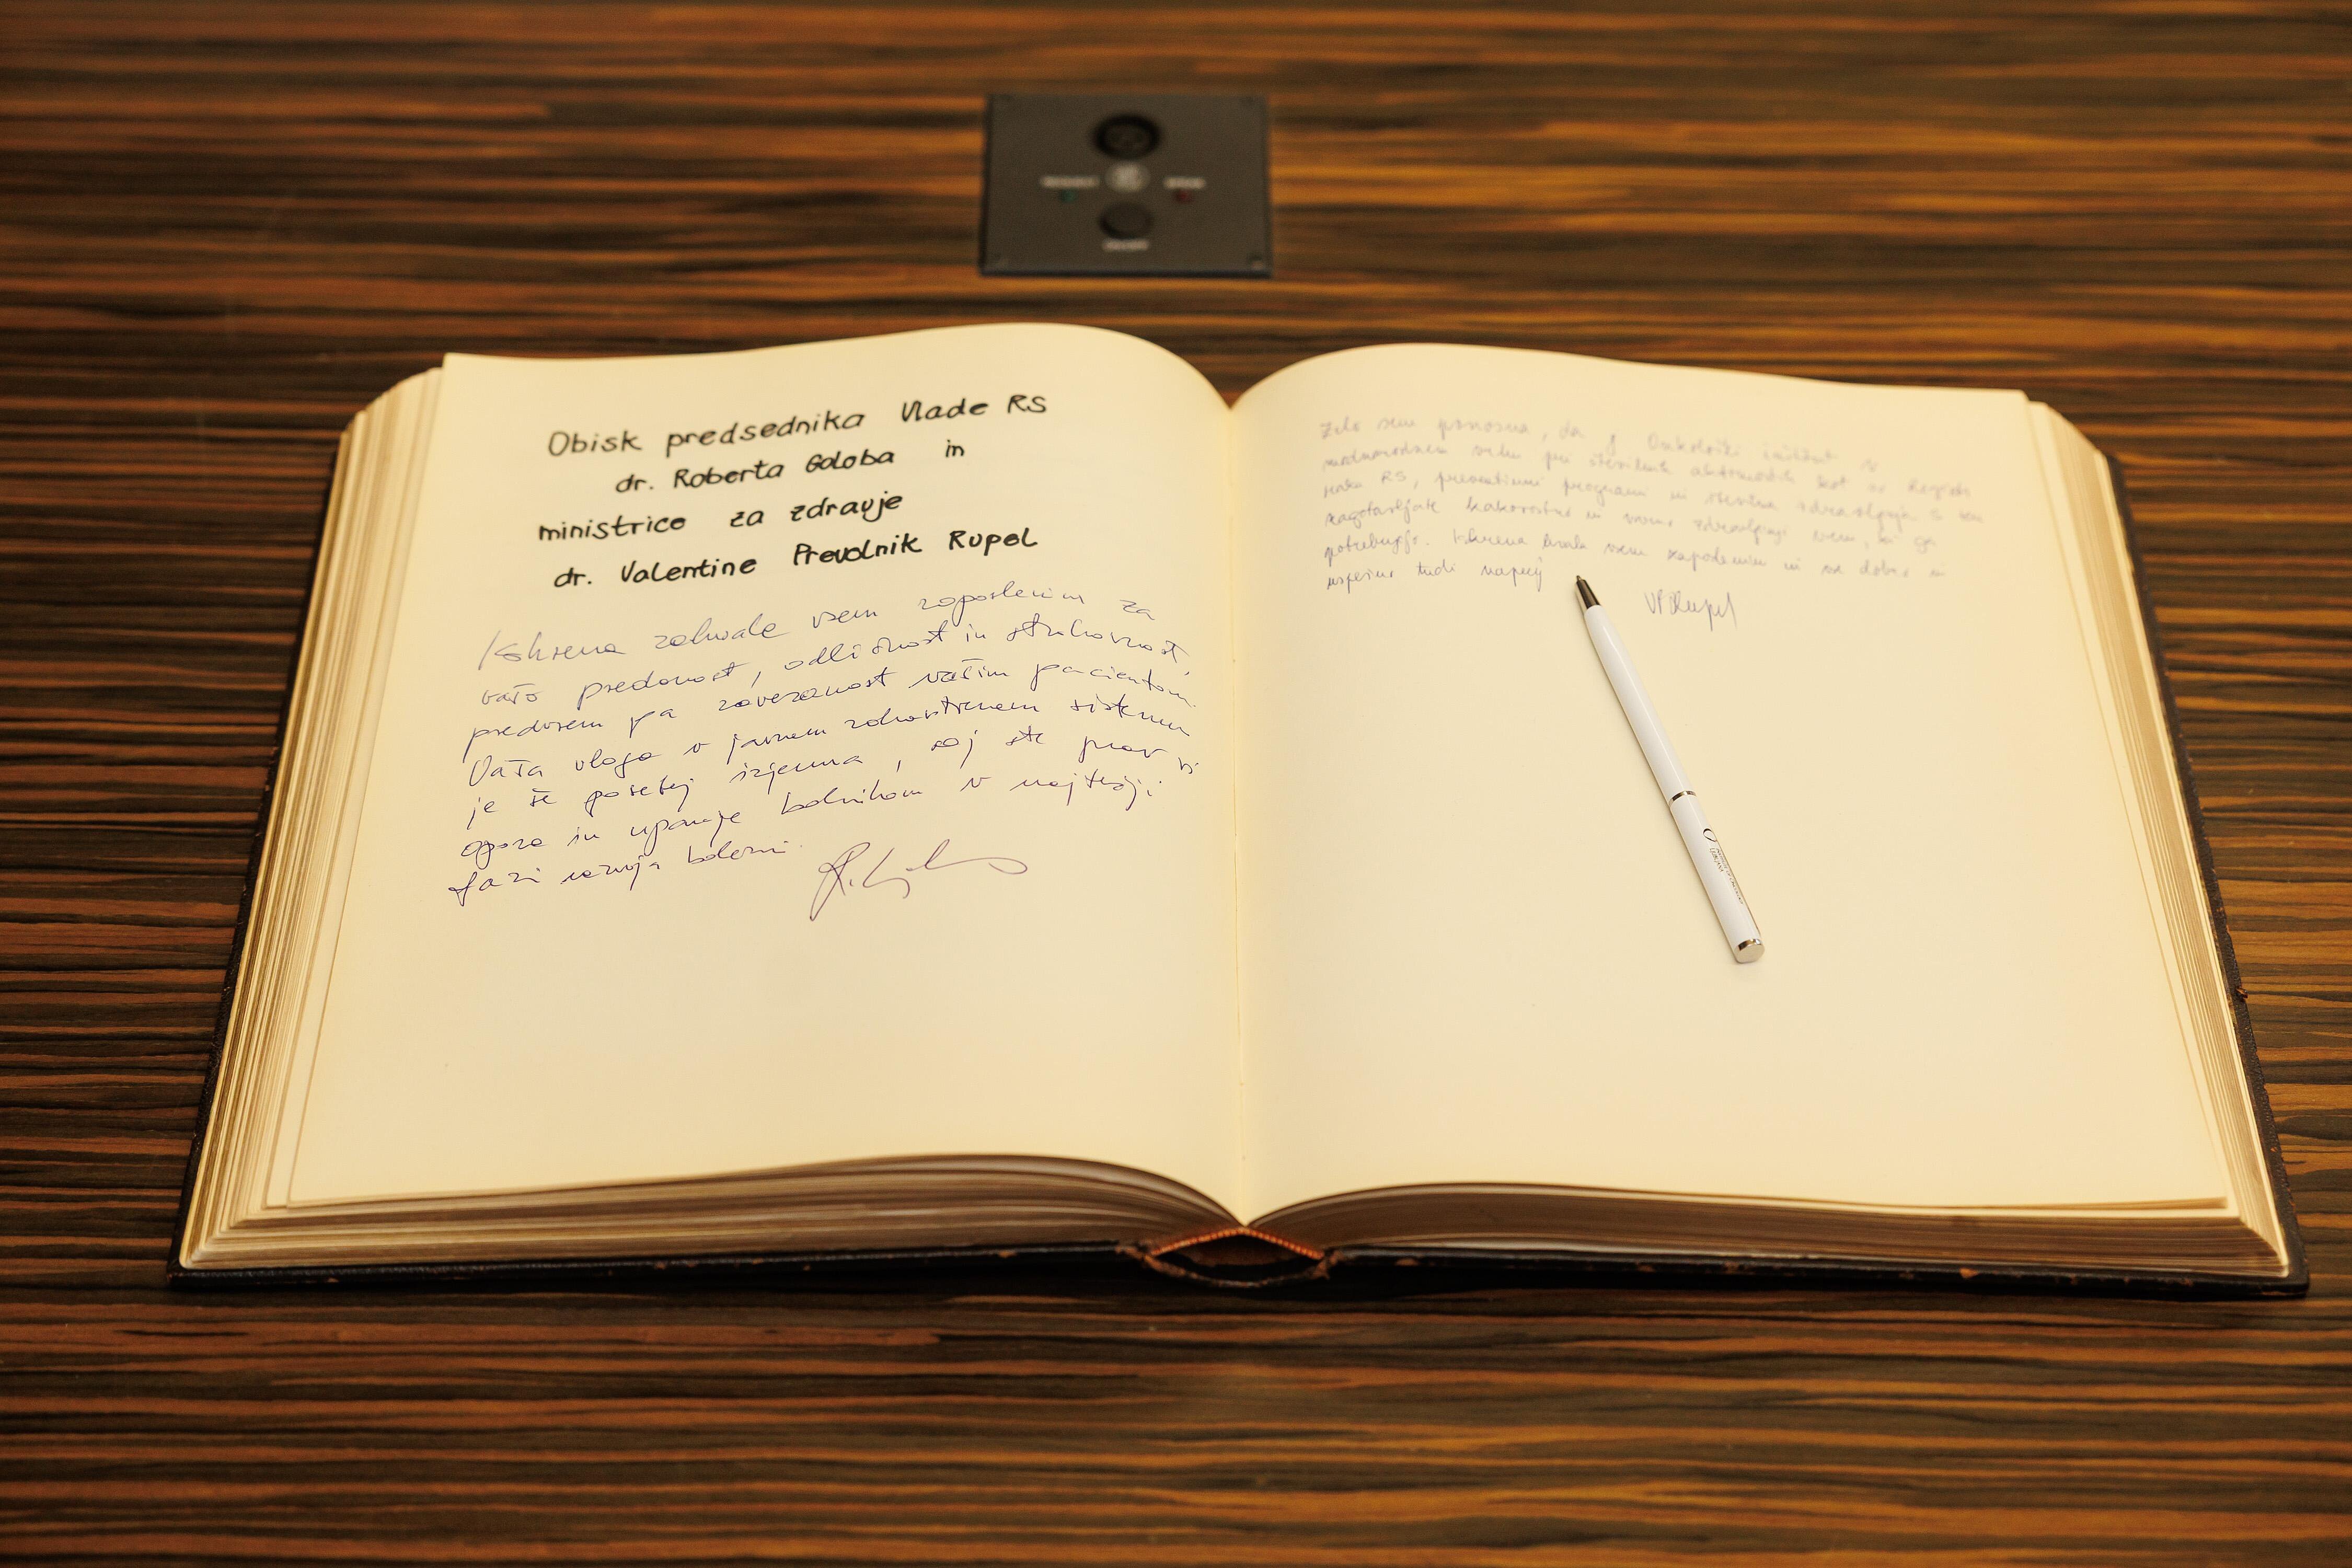 Obisk predsednika Vlade RS
dr. Roberta Goloba in
ministrice za zdravje
dr. Valentine Prevolnik Rupel
Iskrena zahvala vsem zaposlenim za
vašo predanost, odličnost in strokovnost,
predvsem pa zavezanost vašim pacientom.
Vaša vloga v javnem zdravstvenem sistemu
je še posebej izjemna, saj ste prav vi
opora in upanje bolnikom v najtežji
fazi razvoja bolezni.
Zelo sem ponosna, da je Onkološki inštitut
mednarodnem pri številnih aktivnostih kot so Register
raka RS, preventivni programi in zdravljenja
zagotavljate kakovostno in varno zdravljenje vsem, ki ga
potrebujejo. Iskrena hvala vsem zaposlenim in vse dobro in
uspešno tudi naprej